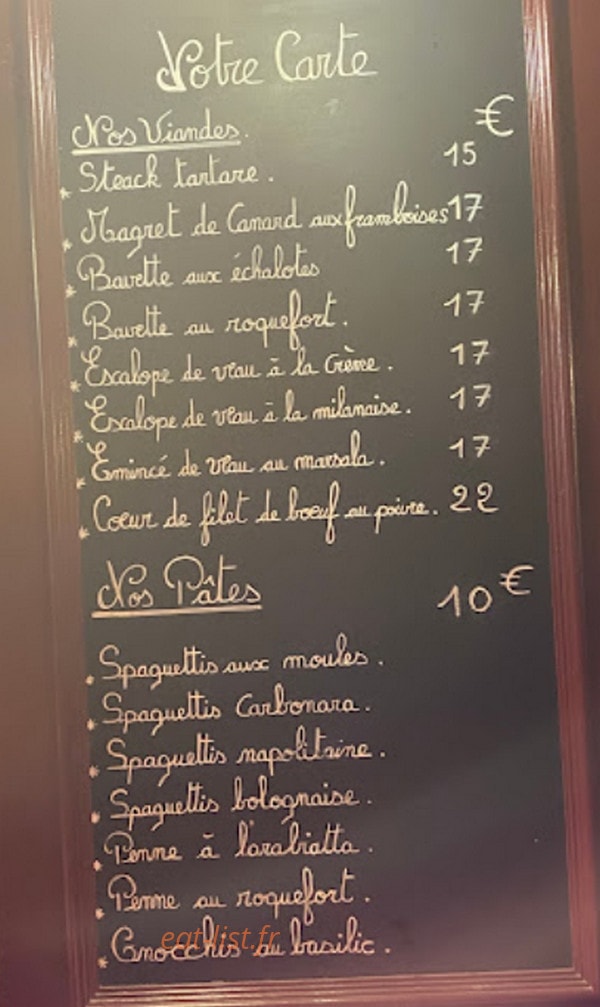 Notre Carte
Nos Viandes. €
* Steack tartare. 15
* Magret de Canard aux framboises 17
* Bavette aux échalotes 17
* Bavette au roquefort. 17
* Escalope de veau à la Crème. 17
* Escalope de veau à la milanaise. 17
* Émincé de veau au marsala. 17
* Coeur de filet de boeuf au poivre. 22
Nos Pâtes 10 €
* Spaguettis aux moules.
* Spaguettis Carbonara.
* Spaguettis napolitaine.
* Spaguettis bolognaise.
* Penne à l'arabiatta.
* Penne au roquefort.
* Gnocchis au basilic.
eat-list.fr